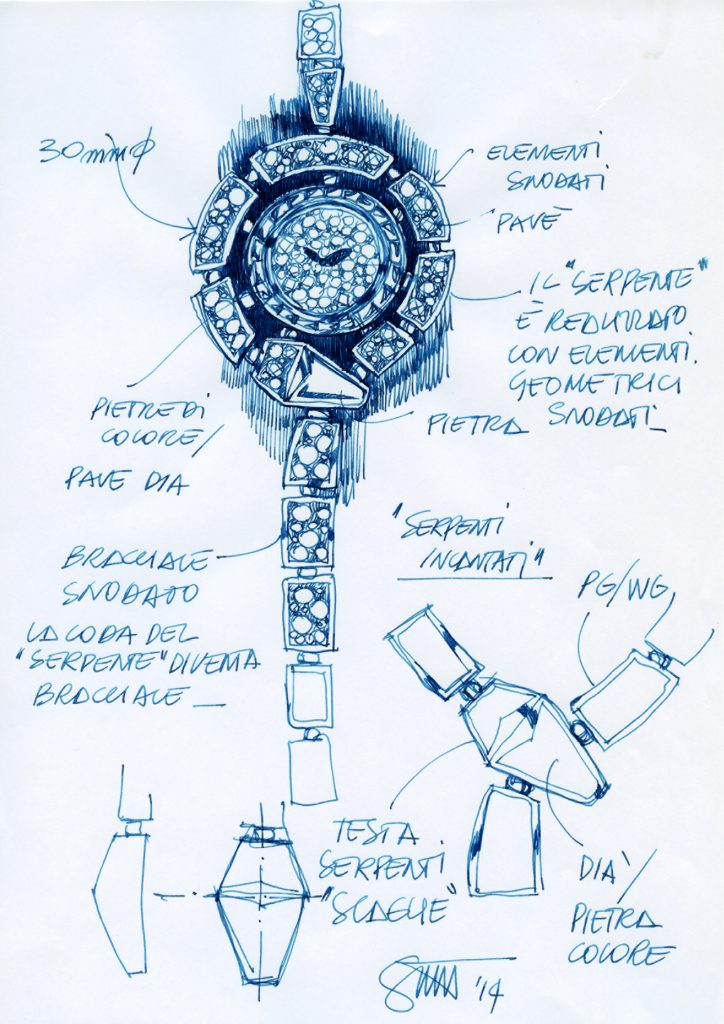 30mm ϕ
ELEMENTI
SNODATI
PAVÈ
IL "SERPENTE"
È REALIZZATO
CON ELEMENTI
GEOMETRICI
SNODATI_
PIETRE DI
COLORE/
PAVE DIA
PIETRA
"SERPENTI
INCANTATI"
BRACCIALE
SNODATO
LA CODA DEL
"SERPENTE" DIVENTA
BRACCIALE_
PG/WG
TESTA
SERPENTI
"SCAGLIE"
DIA'/
PIETRA
COLORE
'14